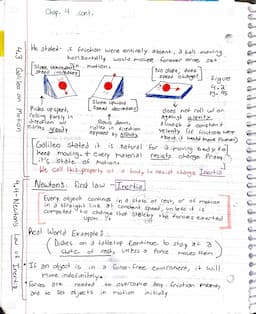 Chap. 4 cont.
4.3 Galileo on Motion
He stated: if friction were entirely absent, a ball moving
horizontally would move forever once set
in motion.
Slope downward
speed increases
Slope upward
speed decreases
No slope, does
speed change?
Figure
4.2
pg. 45
Picks up speed,
rolling partly in
direction of
gravity
Slows down,
rolling in direction
opposed by gravity
does not roll with or
against gravity.
constant
velocity (if friction were
Galileo stated it is natural for a moving body to
keep moving, & every material resists change from
it's state of motion.
We call this property of a body to resist change Inertia
4.4 Newtons Law of Inertia
Newtons First law - Inertia
Every object continues in a state of rest, or of motion
in a straight line at constant speed, unless it is
compelled to change that state by the forces exerted
upon it.
Real World Examples:
Dishes on a tabletop continue to stay at a
state of rest, unless a force moves them
• If an object is in a force-free environment, it will
move indefinitely.
• Forces are needed to overcome any friction
and to set objects in motion initially